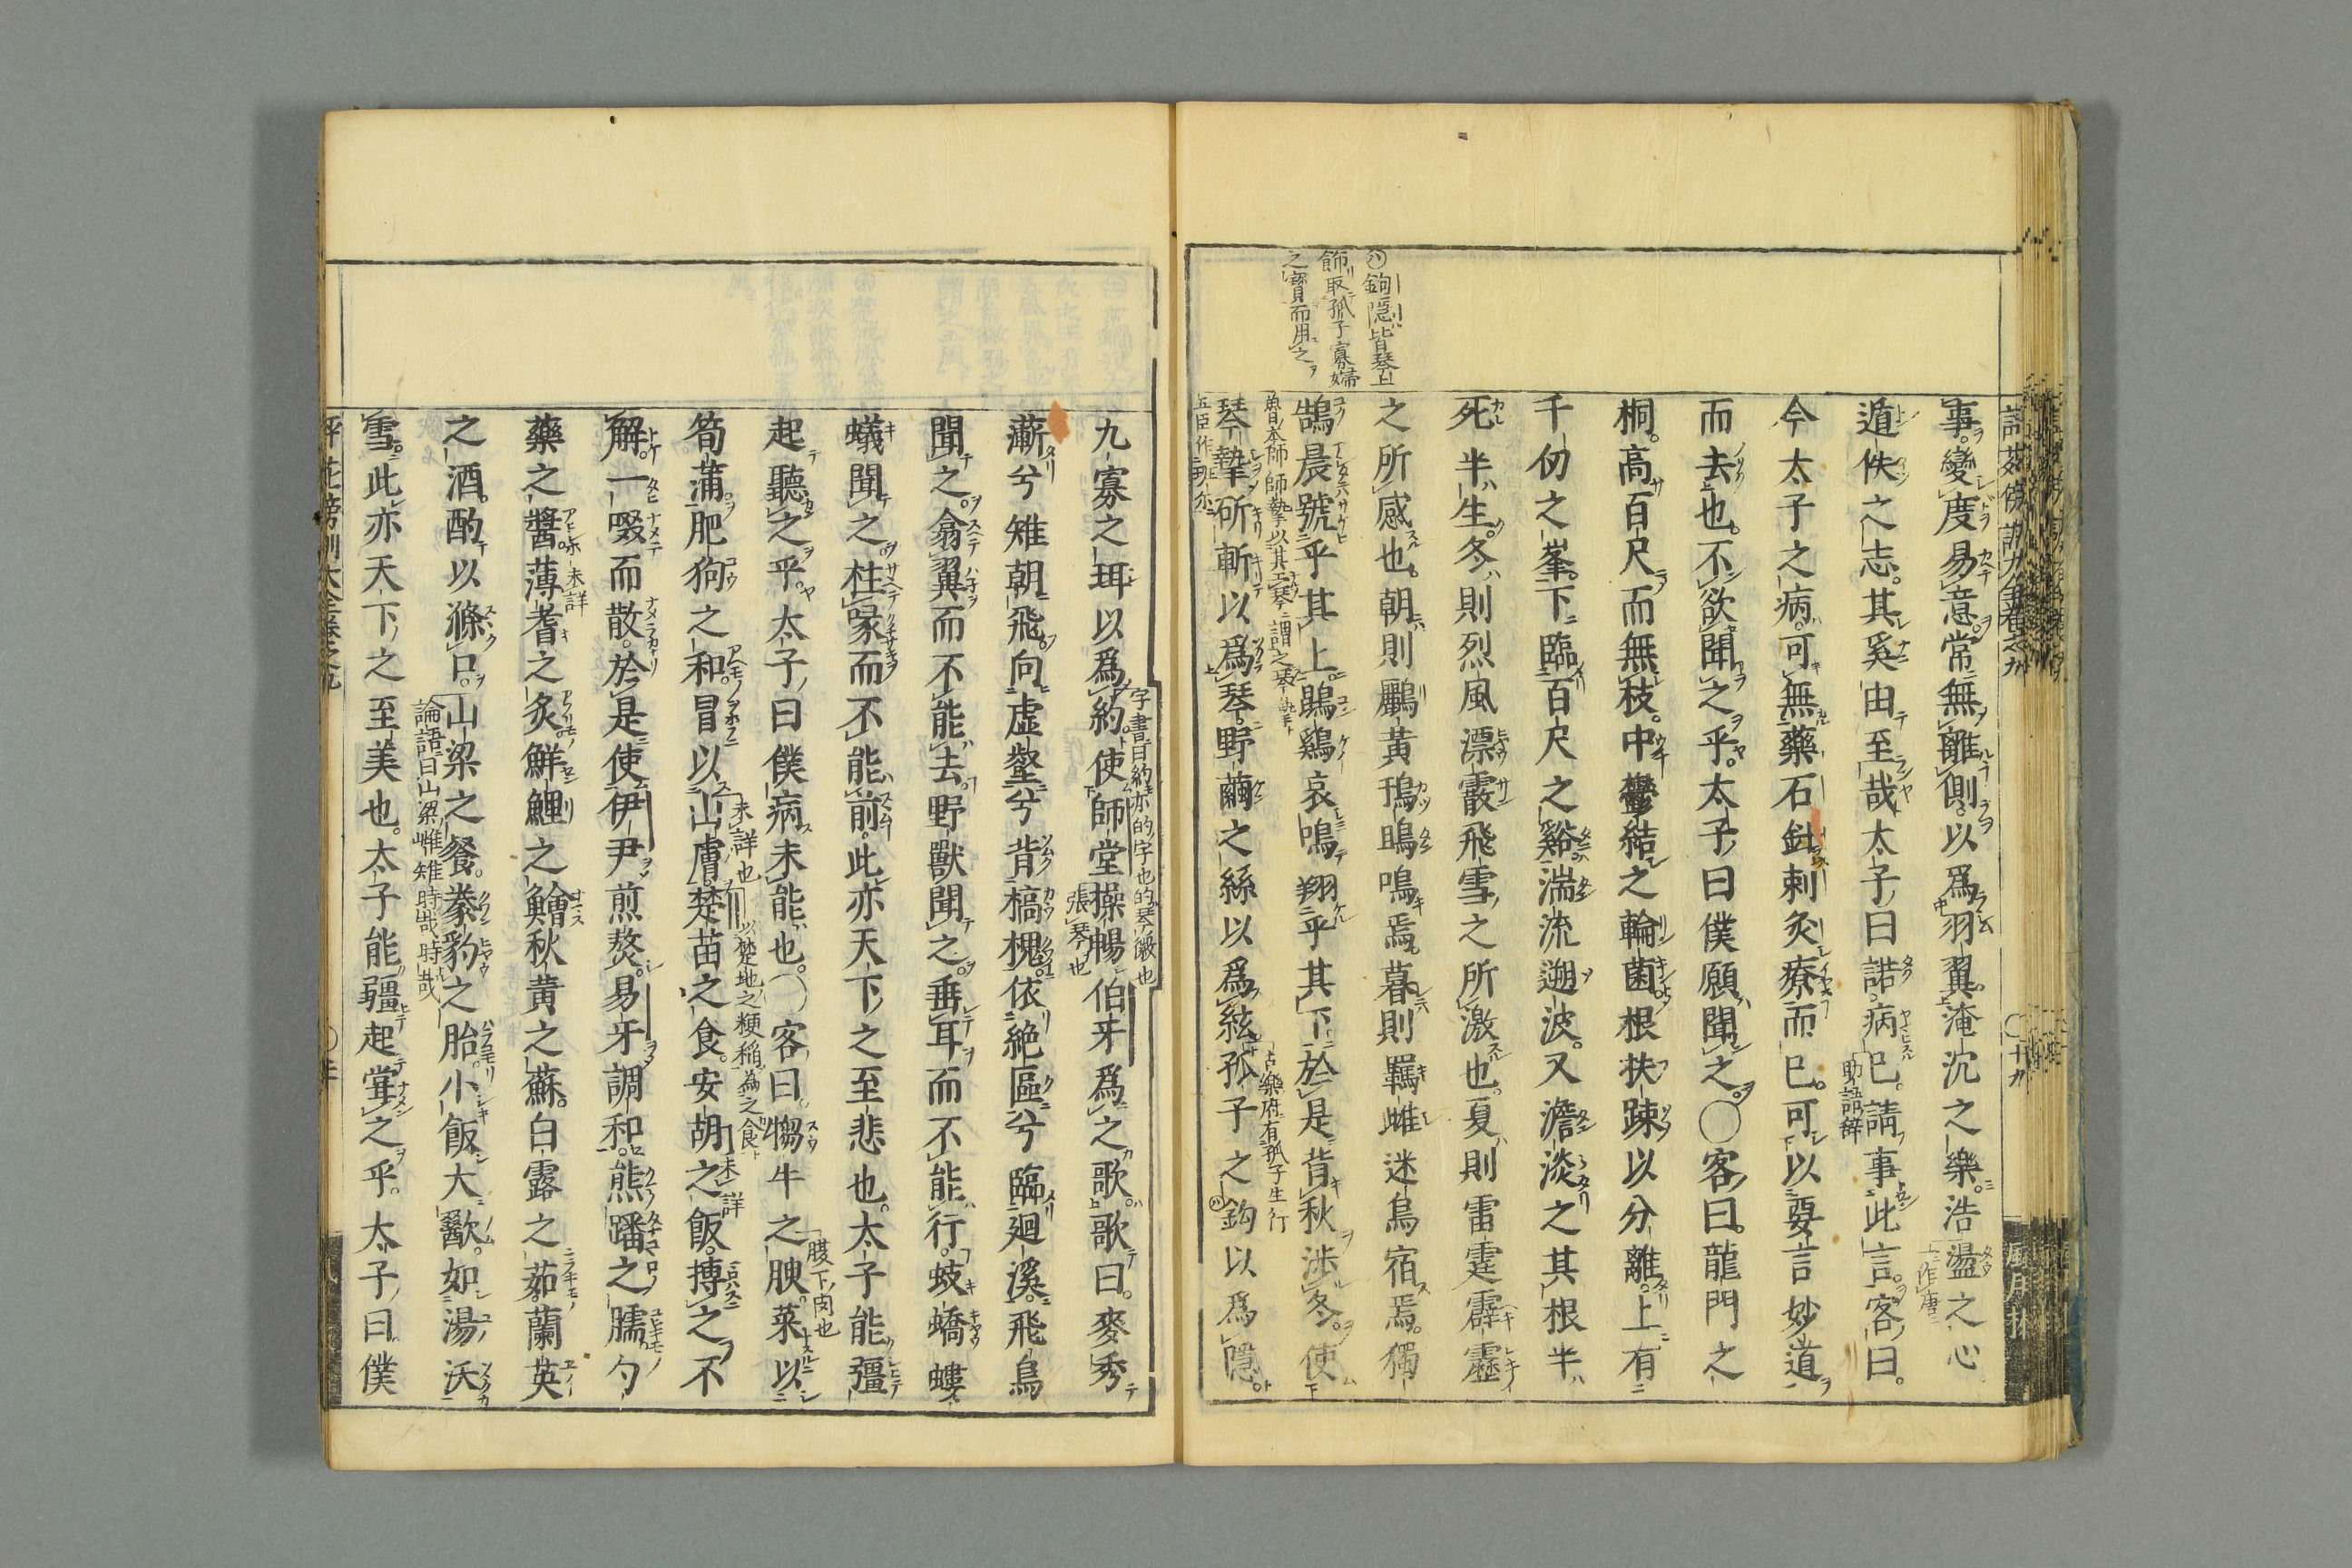 事變度易意常無離側以爲羽翼淹沉之樂浩盪之心
遁佚之志其奚由至哉太子曰諾病已請事此言客曰
今太子之病可無藥石針刺灸療而已可以要言妙道
而去也不欲聞之乎太子曰僕願聞之〇客曰龍門之
桐高百尺而無枝中鬱結之輪菌根扶踈以分離上有
千仞之峯下臨百尺之谿湍流遡波又澹淡之其根半
死半生冬則烈風漂霰飛雪之所激也夏則雷霆霹靂
之所感也朝則鸝黃鳱鴠鳴焉暮則羈雌迷鳥宿焉獨
鵠晨號乎其上鵾鷄哀鳴翔乎其下於是背秋涉冬使
琴摯斫斬以爲琴野繭之絲以爲絃孤子之鈎以爲隱
㋩鉤隠皆琴上
飾取孤子寡婦
之寳而用之
助語辞
九寡之珥以爲約使師堂操暢伯牙爲之歌歌曰麥秀
蔪兮雉朝飛向虚壑兮背槁槐依絶區兮臨廻溪飛鳥
聞之翕翼而不能去野獸聞之垂耳而不能行蚑蟜螻
蟻聞之柱喙而不能前此亦天下之至悲也太子能彊
起聽之乎太子曰僕病未能也〇客曰犓牛之腴菜以
筍蒲肥狗之和冒以山膚楚苗之食安胡之飯摶之不
解一啜而散於是使伊尹煎熬易牙調和熊蹯之臑勺
藥之醬薄耆之炙鮮鯉之鱠秋黃之蘇白露之茹蘭英
之酒酌以滌口山梁之餐豢豹之胎小飯大歠如湯沃
雪此亦天下之至美也太子能彊起甞之乎太子曰僕
字書曰約亦的字也的琴徽也
張琴也
腹下肉也
未詳也
以楚地之粳稲為之食
未詳
未詳
論語曰山梁雌雉時哉時哉